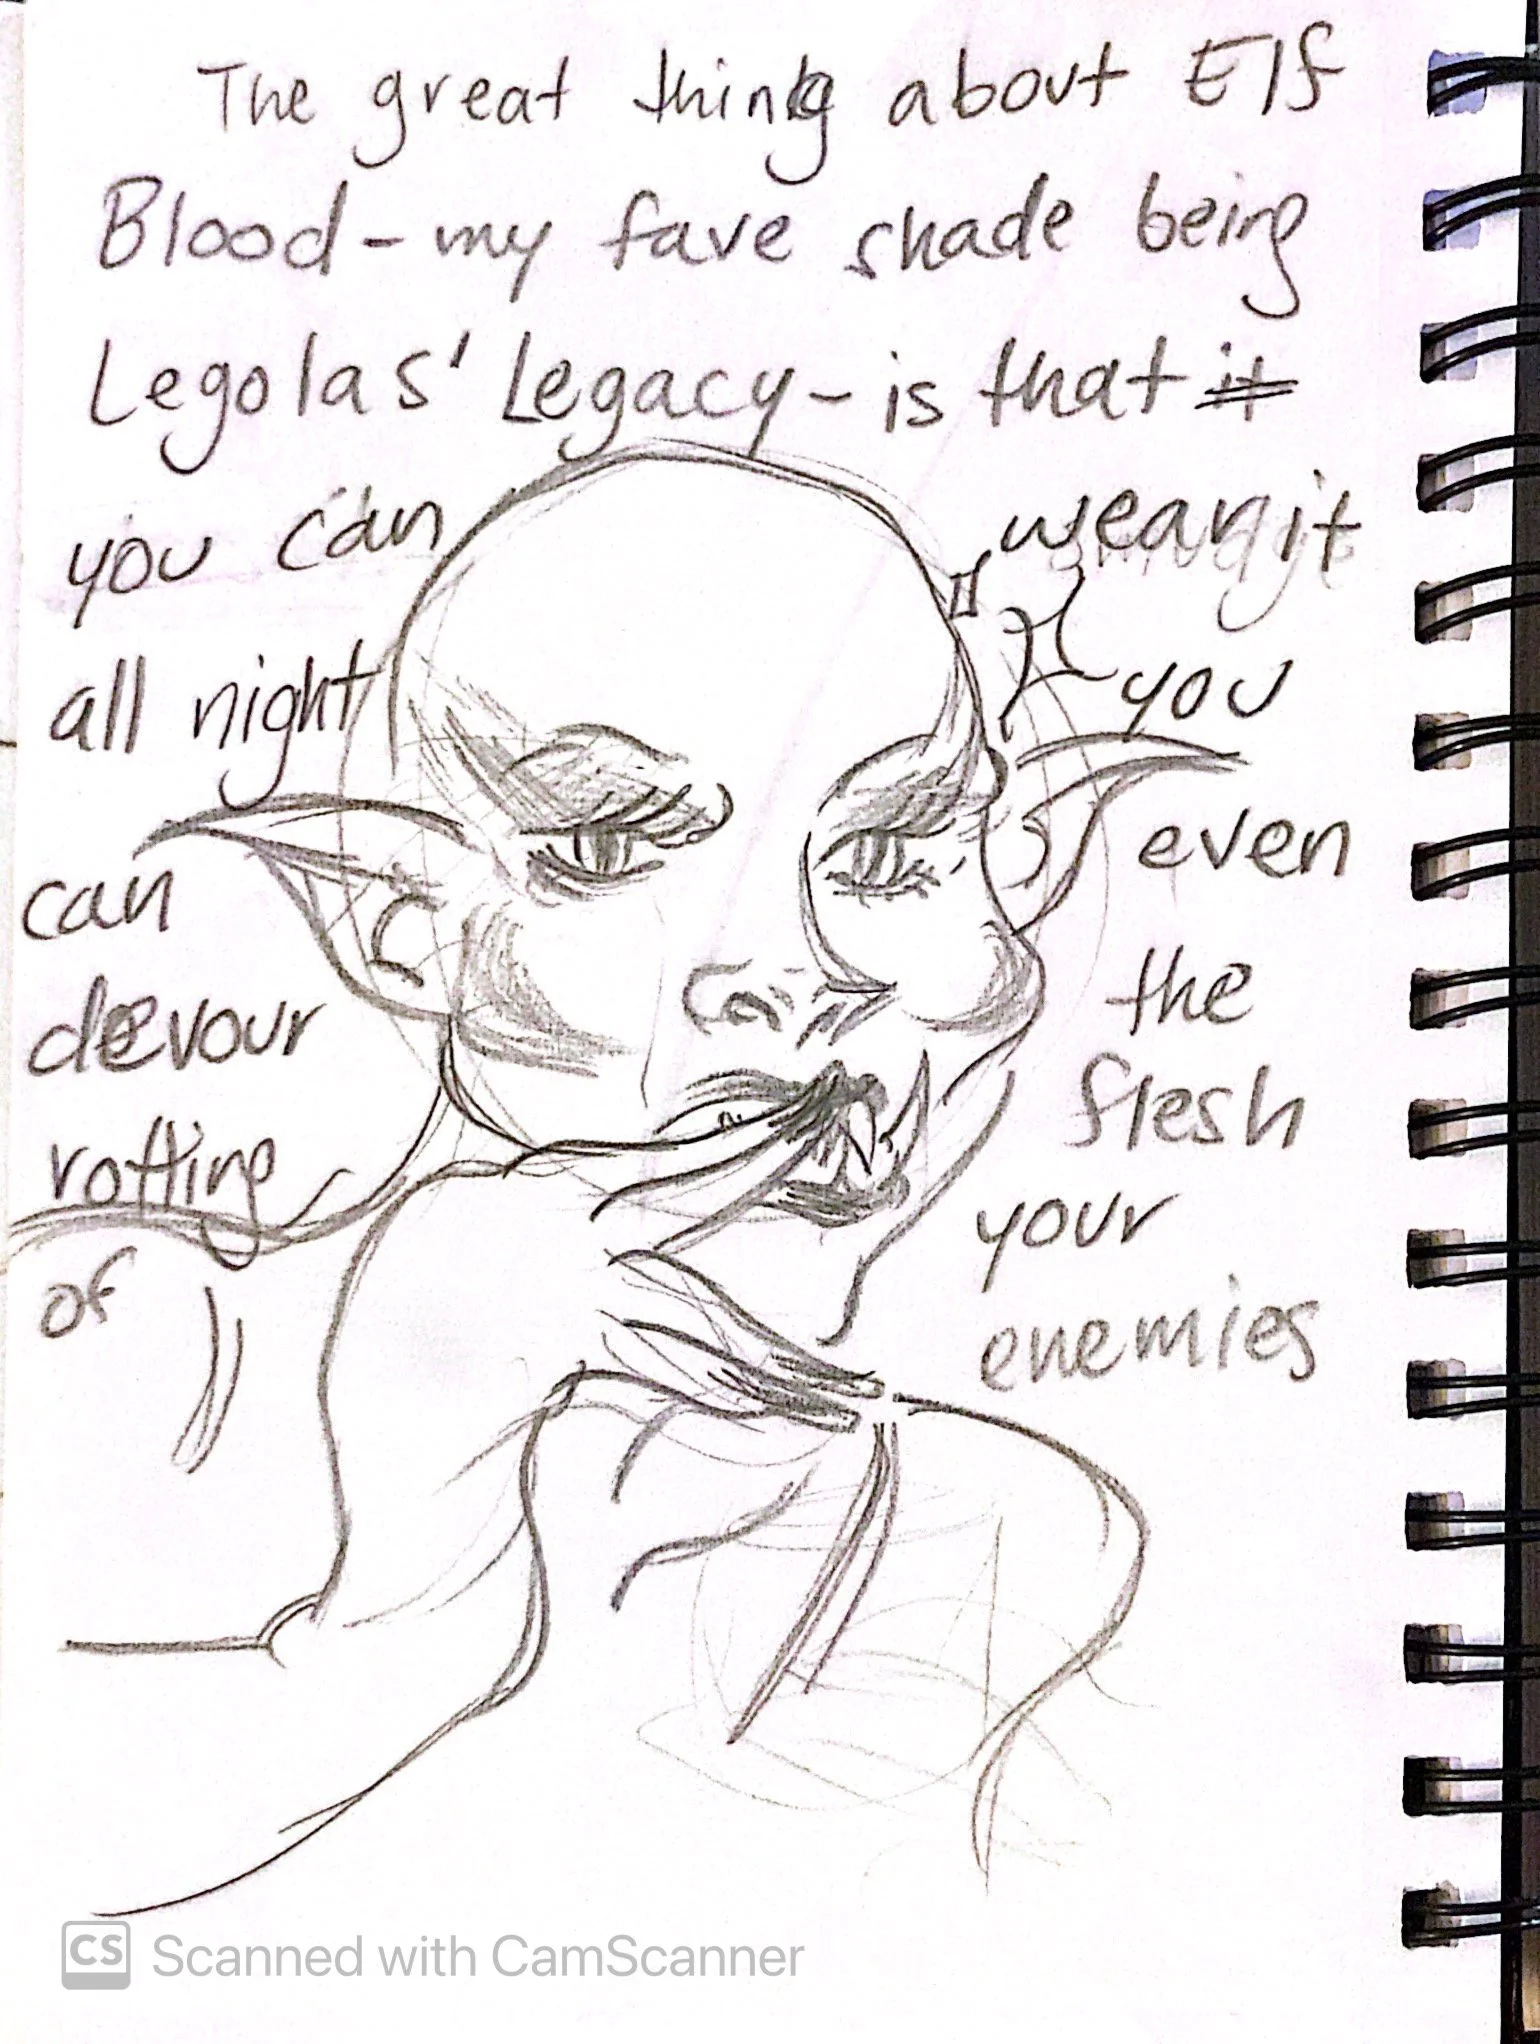 The great thing about Elf
Blood - my fave shade being
Legolas' Legacy - is that
you can wear it
all night you
can even
devour the
rotting flesh
of your
enemies
CS Scanned with CamScanner